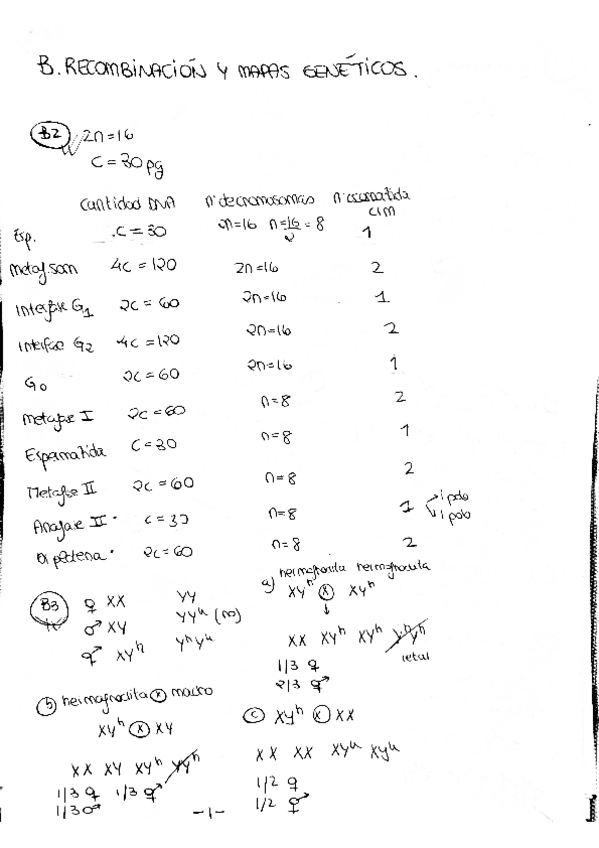 B. RECOMBINACIÓN Y MAPAS GENÉTICOS.
B2 2n=16
C=30pg
Cantidad DNA nº de cromosomas nº cromatida
crm
Esp. C=30 2n=16 n=16/2=8 1
Metaf. som 4c=120 2n=16 2
Interfase G1 2c=60 2n=16 1
Interfase G2 4c=120 2n=16 2
G0 2c=60 2n=16 1
Metafase I 2c=60 n=8 2
Espermatida C=30 n=8 1
Metafase II 2c=60 n=8 2
Anafase II c=30 n=8 1 1 polo
1 polo
Diplotena 2c=60 n=8 2
B3 ♀ XX YY
♂ XY YYh (no)
⚥ XYh YhYh
a) hermafrodita hermafrodita
XYh ⓧ XYh
↓
XX XYh XYh YhYh
letal
1/3 ♀
2/3 ⚥
b) hermafrodita ⓧ macho
XYh ⓧ XY
XX XY XYh YYh
1/3 ♀ 1/3 ⚥
1/3 ♂
c) XYh ⓧ XX
XX XX XYh XYh
1/2 ♀
1/2 ⚥
-1-